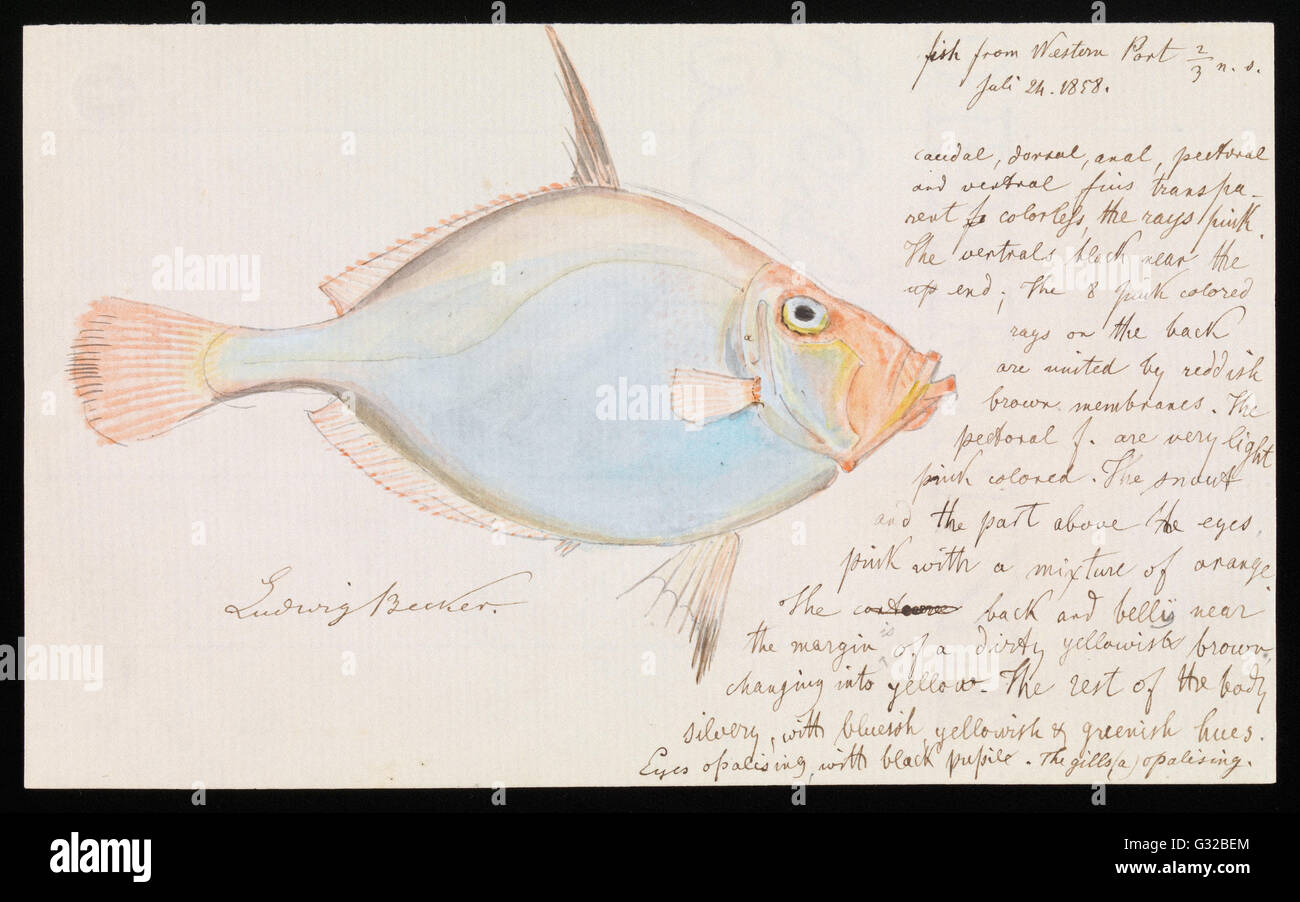 fish from Western Port 2/3 n. s.
Juli 24. 1858.
caudal, dorsal, anal, pectoral
and ventral fins transpa-
rent colorless, the rays pink.
The ventrals black near the
up end; The 8 pink colored
rays on the back
are united by reddish
brown membranes. The
pectoral f. are very light
pink colored. The snout
and the part above the eyes
pink with a mixture of orange.
The back and belly near
the margin is of a dirty yellowish brown,
changing into yellow. The rest of the body
silvery, with bluesish, yellowish & greenish hues.
Eyes opalising, with black pupile. The gills (a) opalising.
a
Ludwig Becker.
alamy
alamy
a
a
a
a
a
alamy
Image ID: G32BEM
www.alamy.com